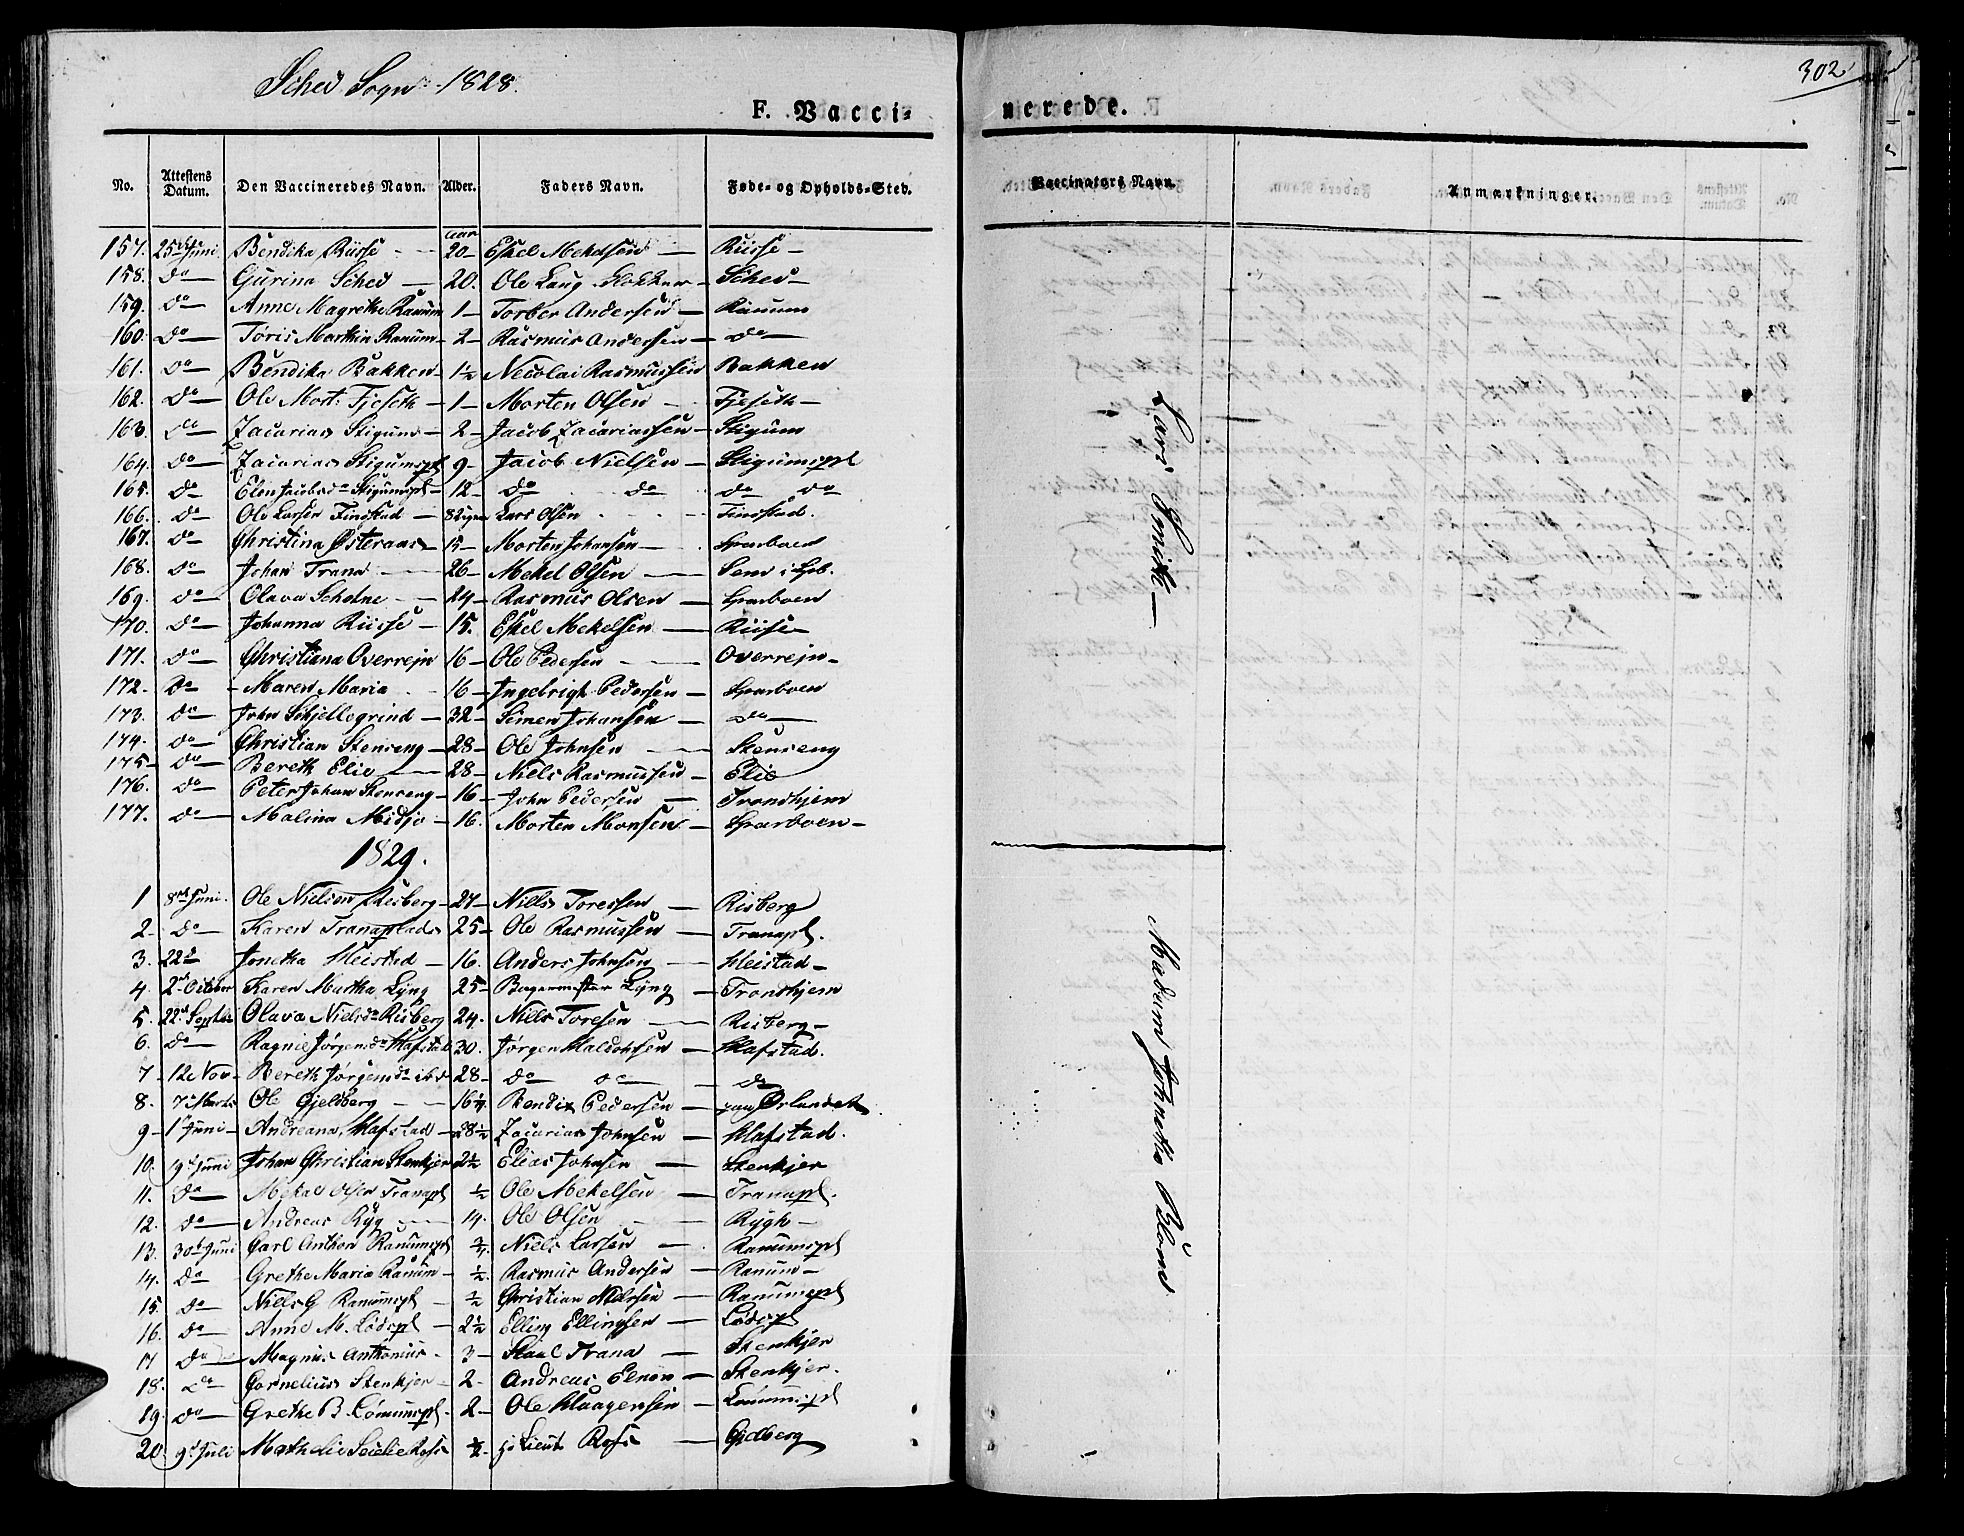 Sched Sogn 1828.
302
F. Vacci-
nerede.
No. Attestens Datum. Den Vaccineredes Navn. Alder. Faders Navn. Føde- og Opholds-Sted. Vaccinators Navn. Anmærkninger.
Aar
157. 25de Juni Bendika Riisse 20 Eskel Mekelsen Riisse
158. do Gurina Sched 20. Ole Laug Klokker Sched
159. do Anne Magrethe Ranum 1 Torber Andersen Ranum
160. do Tøris Marthin Ranum 2 Rasmus Andersen do
161. do Bendika Bakken 1½ Necolai Rasmussen Bakken
162. do Ole Mort. Fjeseth 1 Morten Olsen Fjeseth
163. do Zacarias Stigum 2 Jacob Zacariassen Stigum
164. do Zacarias Stigumspl 9 Jacob Nielsen Stigumspl
165. do Elen Jacobsd Stigumspl 12 do do do do
166. do Ole Larsen Findstad 8 Uger Lars Olsen Findstad.
167. do Christina Østeraas 15 Morten Johansen Sparboen
168. do Johan Trana 26 Mekel Olsen Sem i Spb.
169. do Olava Schelne 24 Rasmus Olsen Sparboen
170. do Johanna Riisse 15. Eskel Mekelsen Riise
171. do Christiana Overrejn 16 Ole Pedersen Overrejn
172. do Maren Maria 16 Ingebrigt Pedersen Sparboen
173. do John Schjellegrind 32 Simen Johansen do
174. do Christian Stenseng 28 Ole Johnsen Stenseng
175 do Bereth Elie 28 Niels Rasmussen Elie
176. do Peter Johan Stenseng 16 John Pedersen Trondhjem
177. do Malina Midjo 16. Morten Monsen Sparboen
Lars Smith
1829.
1 8de Juni. Ole Nielsen Risberg 27 Niels Toressen Risberg
2. do Karen Tranaplads 25 Ole Rasmussen Tranapl.
3. 22d Jonetha Heistad 16. Anders Johnsen Heistad
4. 2d October Karen Martha Lyng 25 Bogermester Lyng Trondhjem
5. 22d Septbr Olava Nielsd Risberg 24. Niels Toresen Risberg
6. do Ragnil Jørgensd Hafstad 30. Jørgen Haldohsen Hafstad.
7 12 Nov Bereth Jørgensd ibd 28 do do do
8. 7d Marts Ole Gjeldberg 16¼ Bendix Pedersen paa Ørlandet
9 1d Juni Andreana Hafstad 28½ Zacarias Johnsen Hafstad.
10. 19d Juni Johan Christian Stenkjer 2½ Elias Johnsen Stenkjer
11. do Mekal Olsen Tranapl ½ Ole Mekelsen Tranapl.
12. do Andreas Ryg 14. Ole Olsen Rygh
13. 30d Juni Carl Anthon Ranumspl ¾ Niels Larsen Ranumspl
14. do Grethe Maria Ranum ½ Rasmus Andersen Ranum
15. do Niels G Ranumspl ½ Christian Nielsen Ranumspl
16. do Anne M. Lødspl 2½ Elling Ellingsen Lødspl
17 do Magnus Anthonius 3 Trana Stenkjer
18. do Cornelius Stenkjer 2 Andreas Stenkjer.
19. do Grethe B. Lømumspl 2 Ole Haagensen Lømumspl
20. 9d Juli ½ Lieut Ross Gjelberg
Madam Johnetha Blom